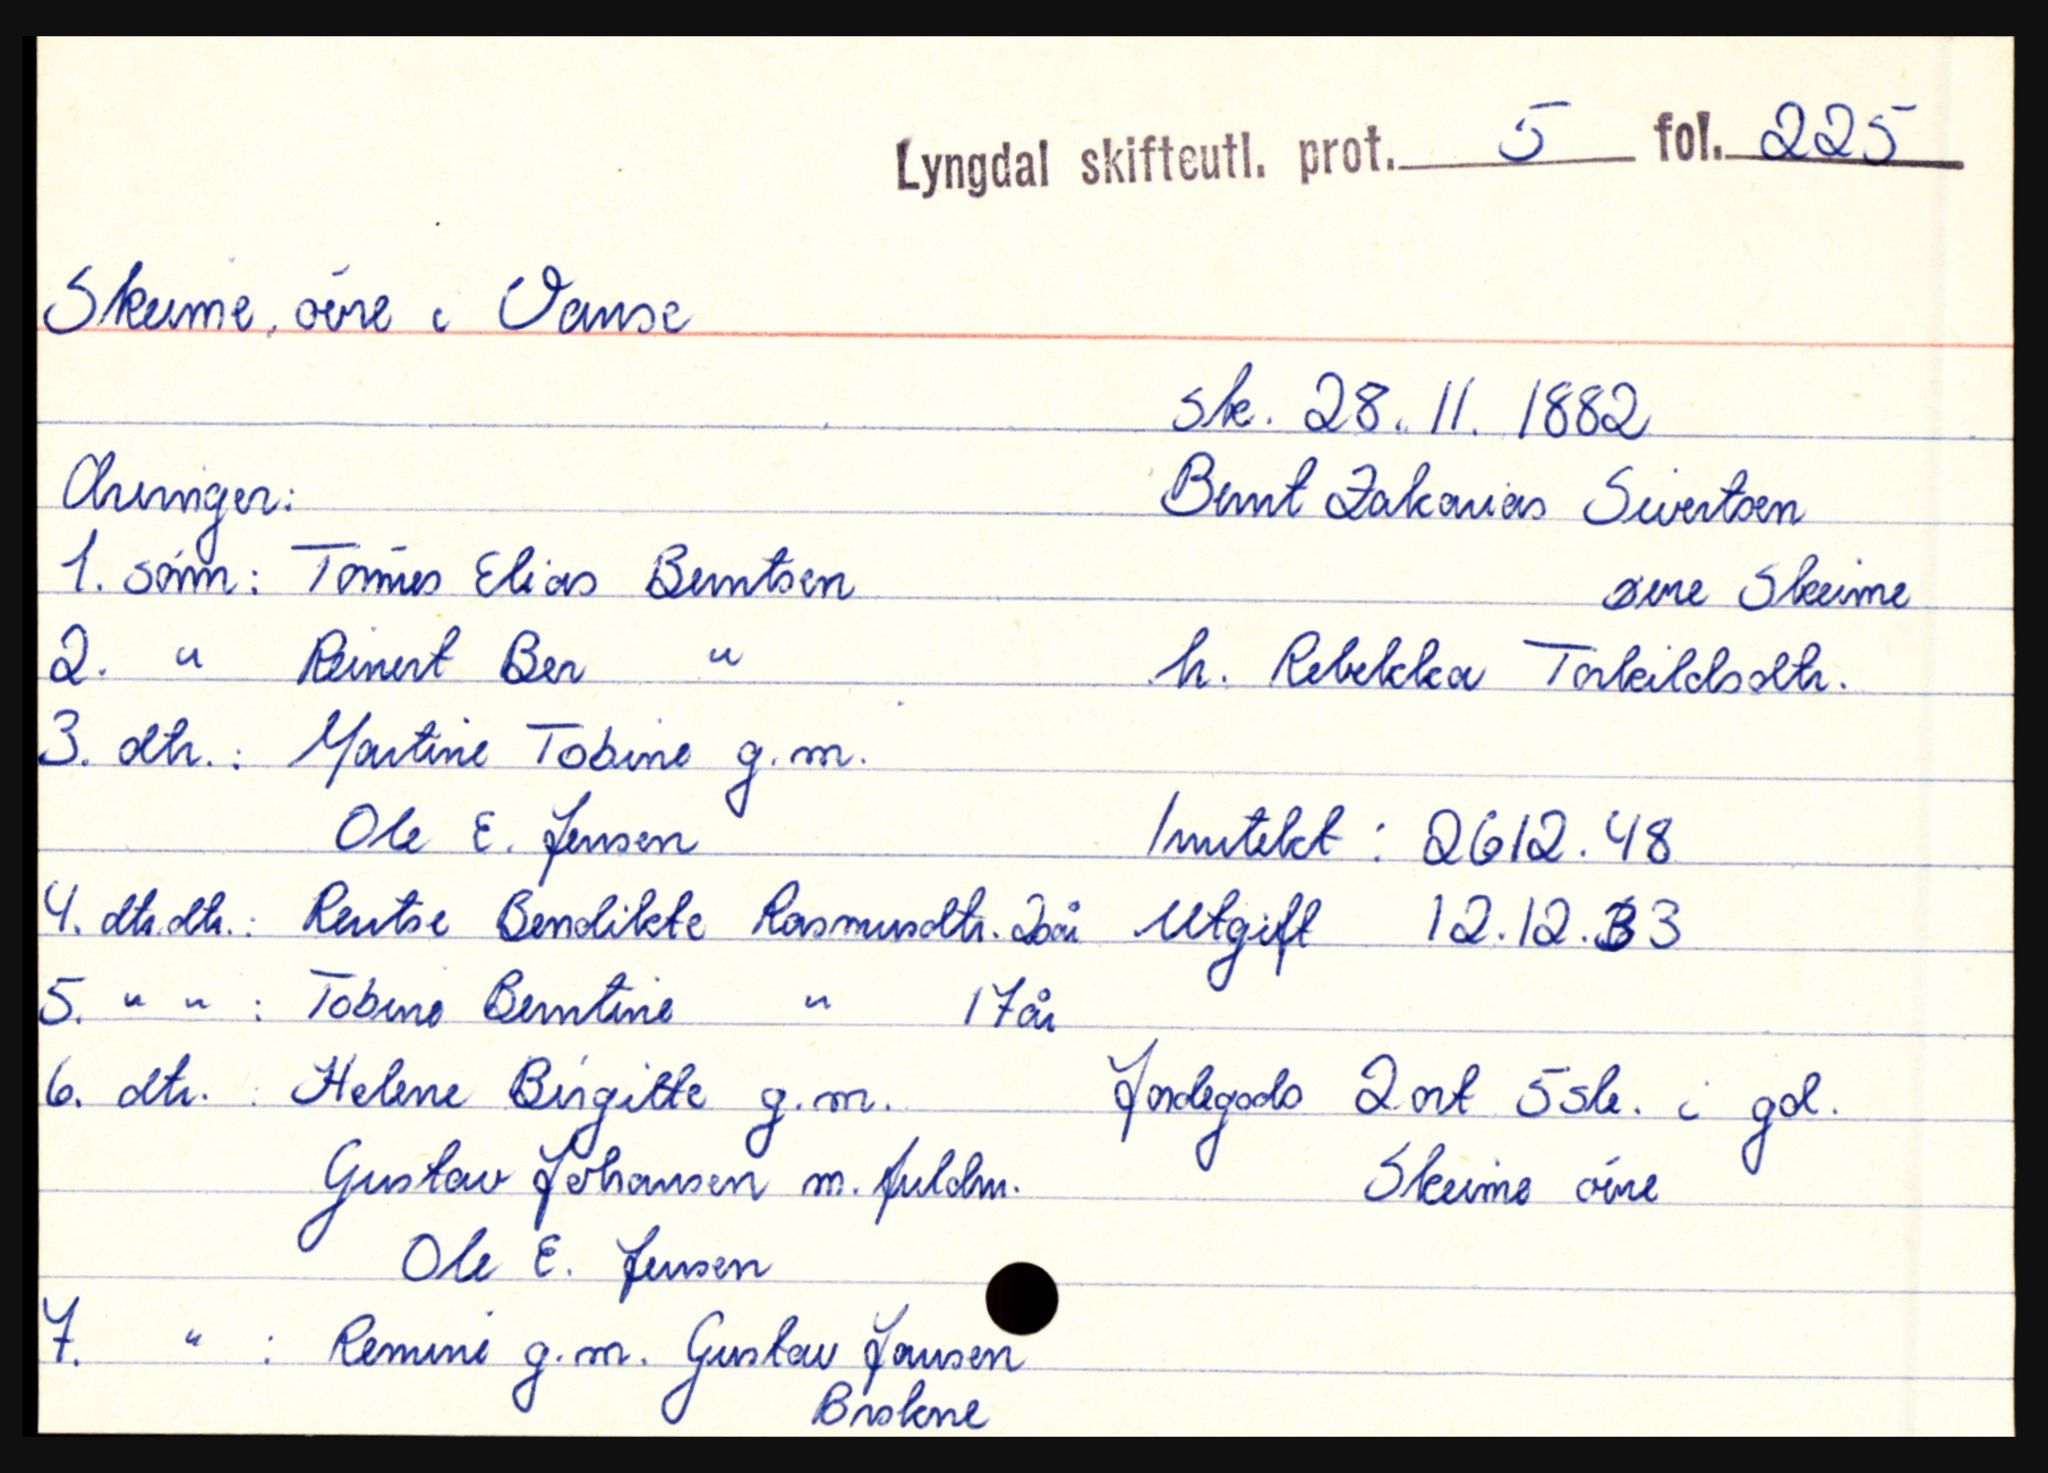 Lyngdal skifteutl. prot. 5 fol. 225
Skeime, øvre i Vanse
sk. 28. 11. 1882
Arvinger:
Bernt Zakarias Sivertsen
1. sønn: Tønnes Elias Berntsen
øvre Skeime
2. " Reinert Ber "
h. Rebekka Torkildsdtr.
3. dtr.: Martine Tobine g.m.
Ole E. Jensen
Inntekt: 2612.48
4. dtr.dtr.: Rentse Bendikte Rasmusdtr. 20 år
Utgift 12.12.33
5. " " : Tobine Berntine " 17 år
6. dtr. : Helene Birgitte g.m.
Jordegods 2 ort 5 sk. i gd.
Gustav Johansen m. fuldm.
Skeime øvre
Ole E. Jensen
7. " : Remine g.m. Gustav Jansen
Briskne